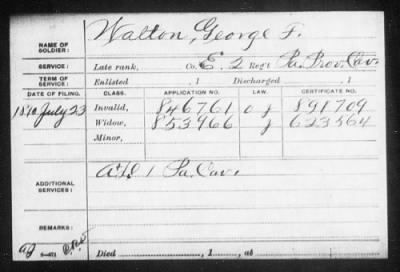 Walton, George F.
NAME OF SOLDIER:
SERVICE: Late rank, Co. E. 2 Reg't Pa. Prov. Cav.
TERM OF SERVICE: Enlisted , 1 Discharged , 1
DATE OF FILING. CLASS. APPLICATION NO. LAW. CERTIFICATE NO.
1890 July 23 Invalid, 846761 891709
Widow, 853966 623564
Minor,
ADDITIONAL SERVICES: 1 Pa. Cav.
REMARKS:
Died , 1 , at